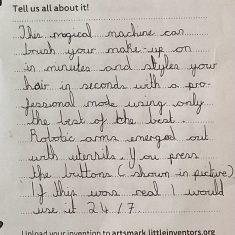 Tell us all about it!
This magical machine can
brush your make-up on
in minutes and styles your
hair in seconds with a pro-
fessional mode using only
the best of the best.
Robotic arms emerged out
with utensils. You press
the buttons (shown in picture)
If this was real I would
use it 24/7.
Upload your invention to artsmark.littleinventors.org